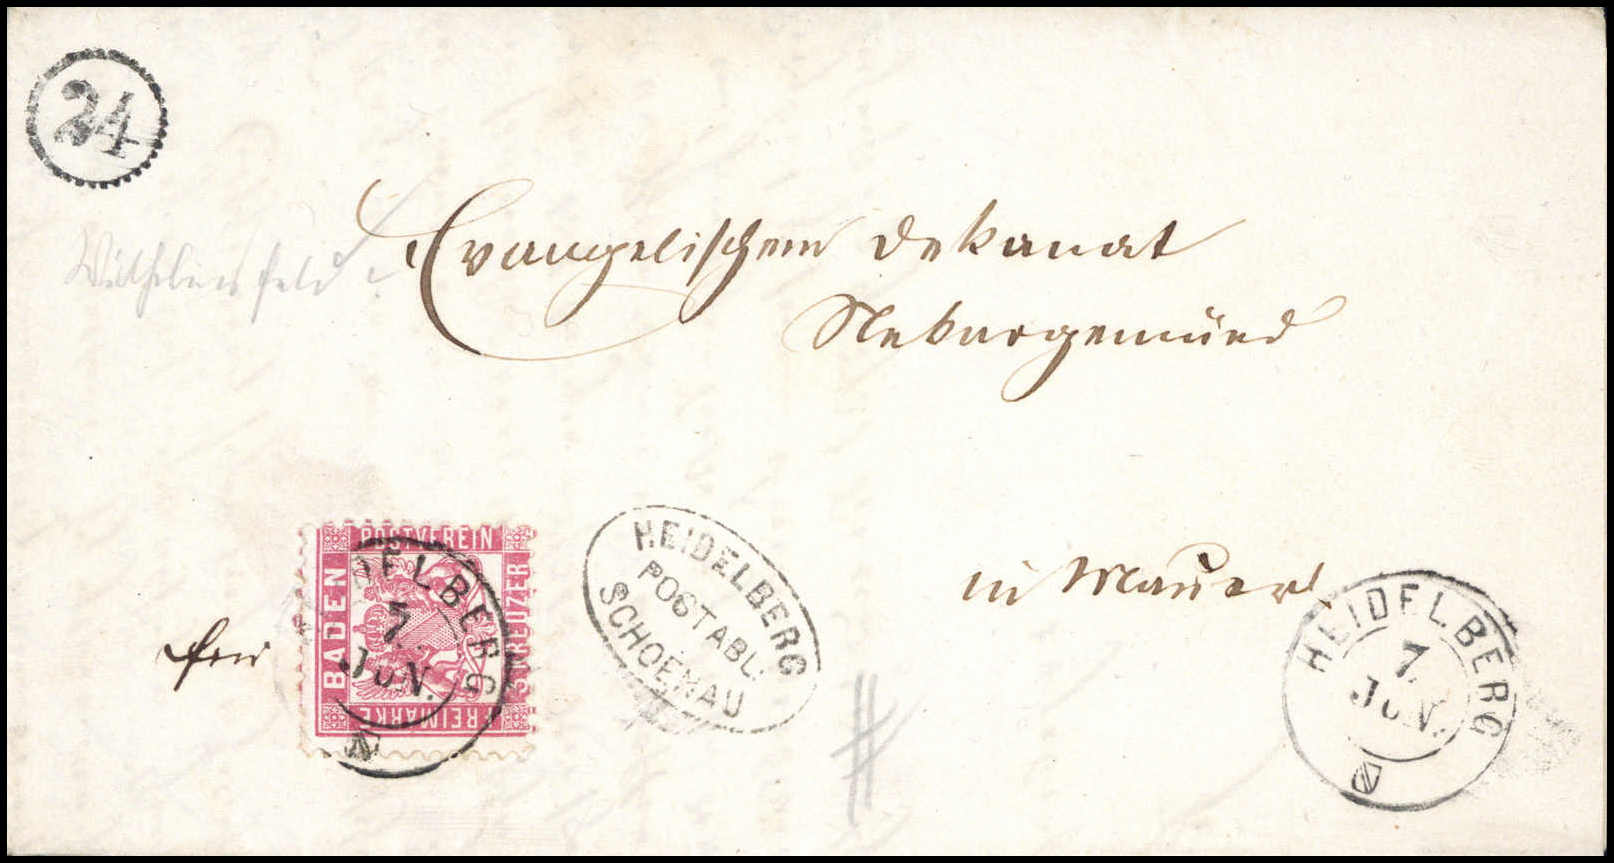 24
Evangelischem Dekanat
Wilhelmsfeld
Neckargemünd
POSTVEREIN
BADEN
3 KREUZER
FREIMARKE
HEIDELBERG
7
JUN.
frei
HEIDELBERG
POSTABL:
SCHOENAU
in Mauer
HEIDELBERG
7
JUN.